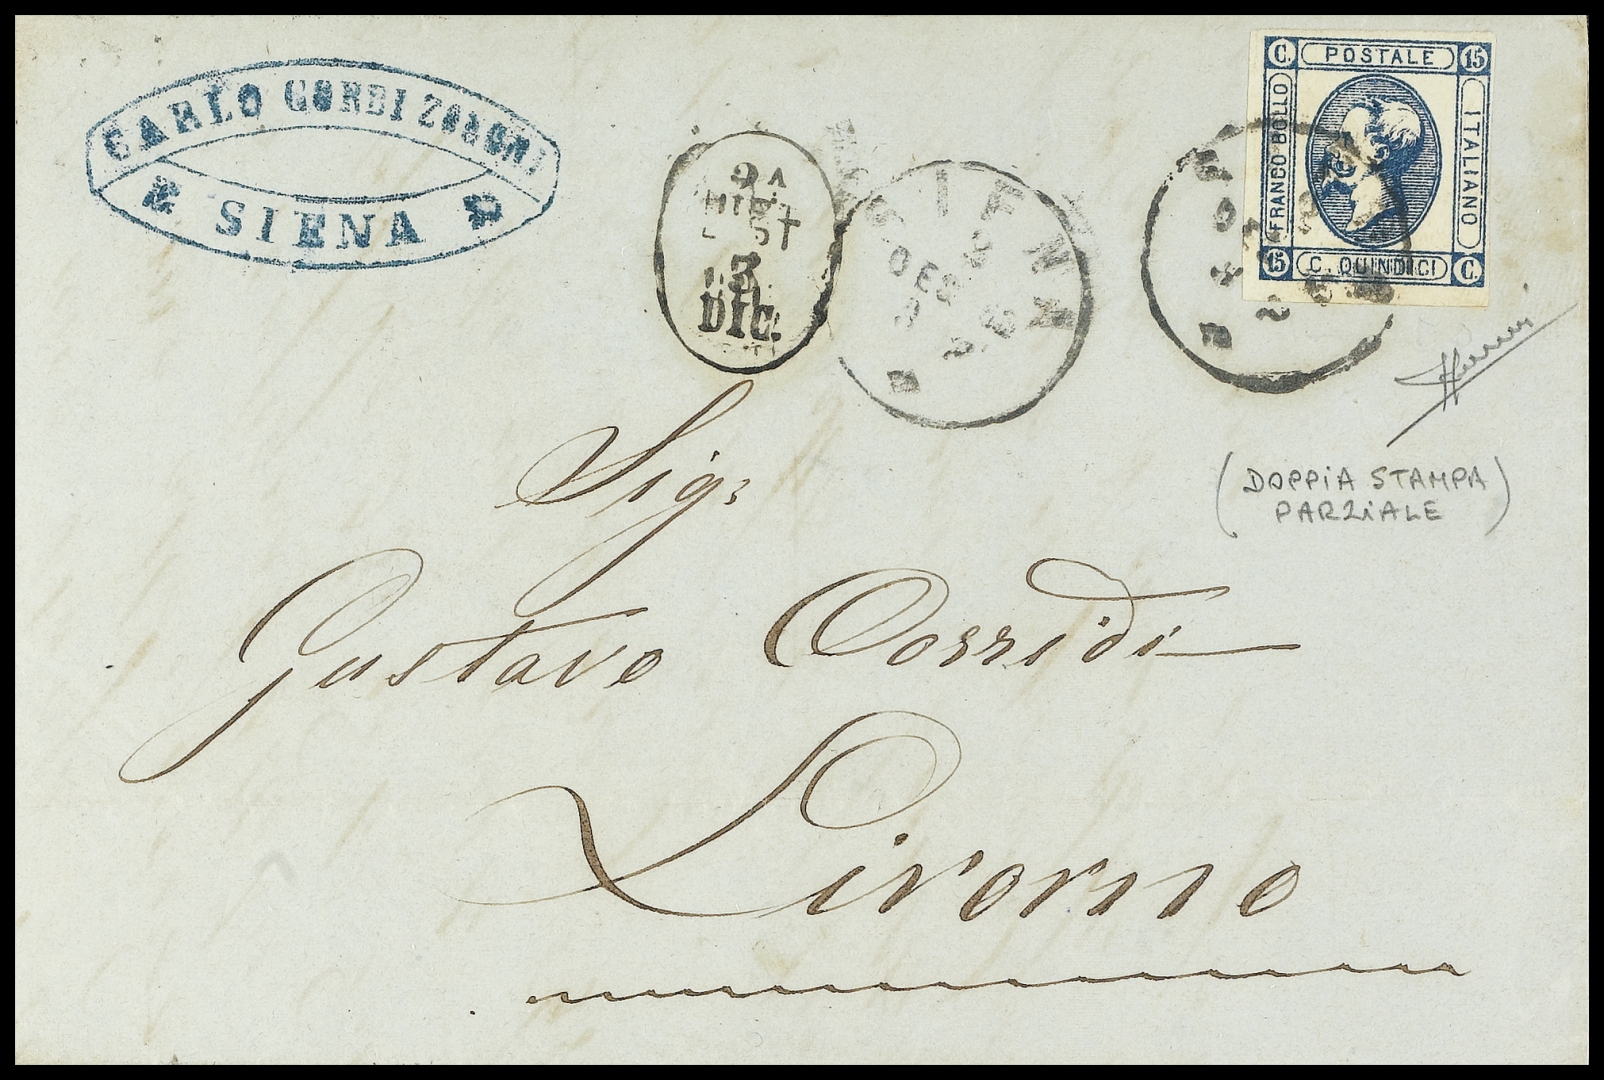 CARLO GORDI
SIENA
C. POSTALE 15
FRANCO BOLLO
ITALIANO
15 C. QUINDICI C.
SIENA
DIST
3
DIC.
(DOPPIA STAMPA
PARZIALE)
Sig:
Gustavo Corridi
Livorno